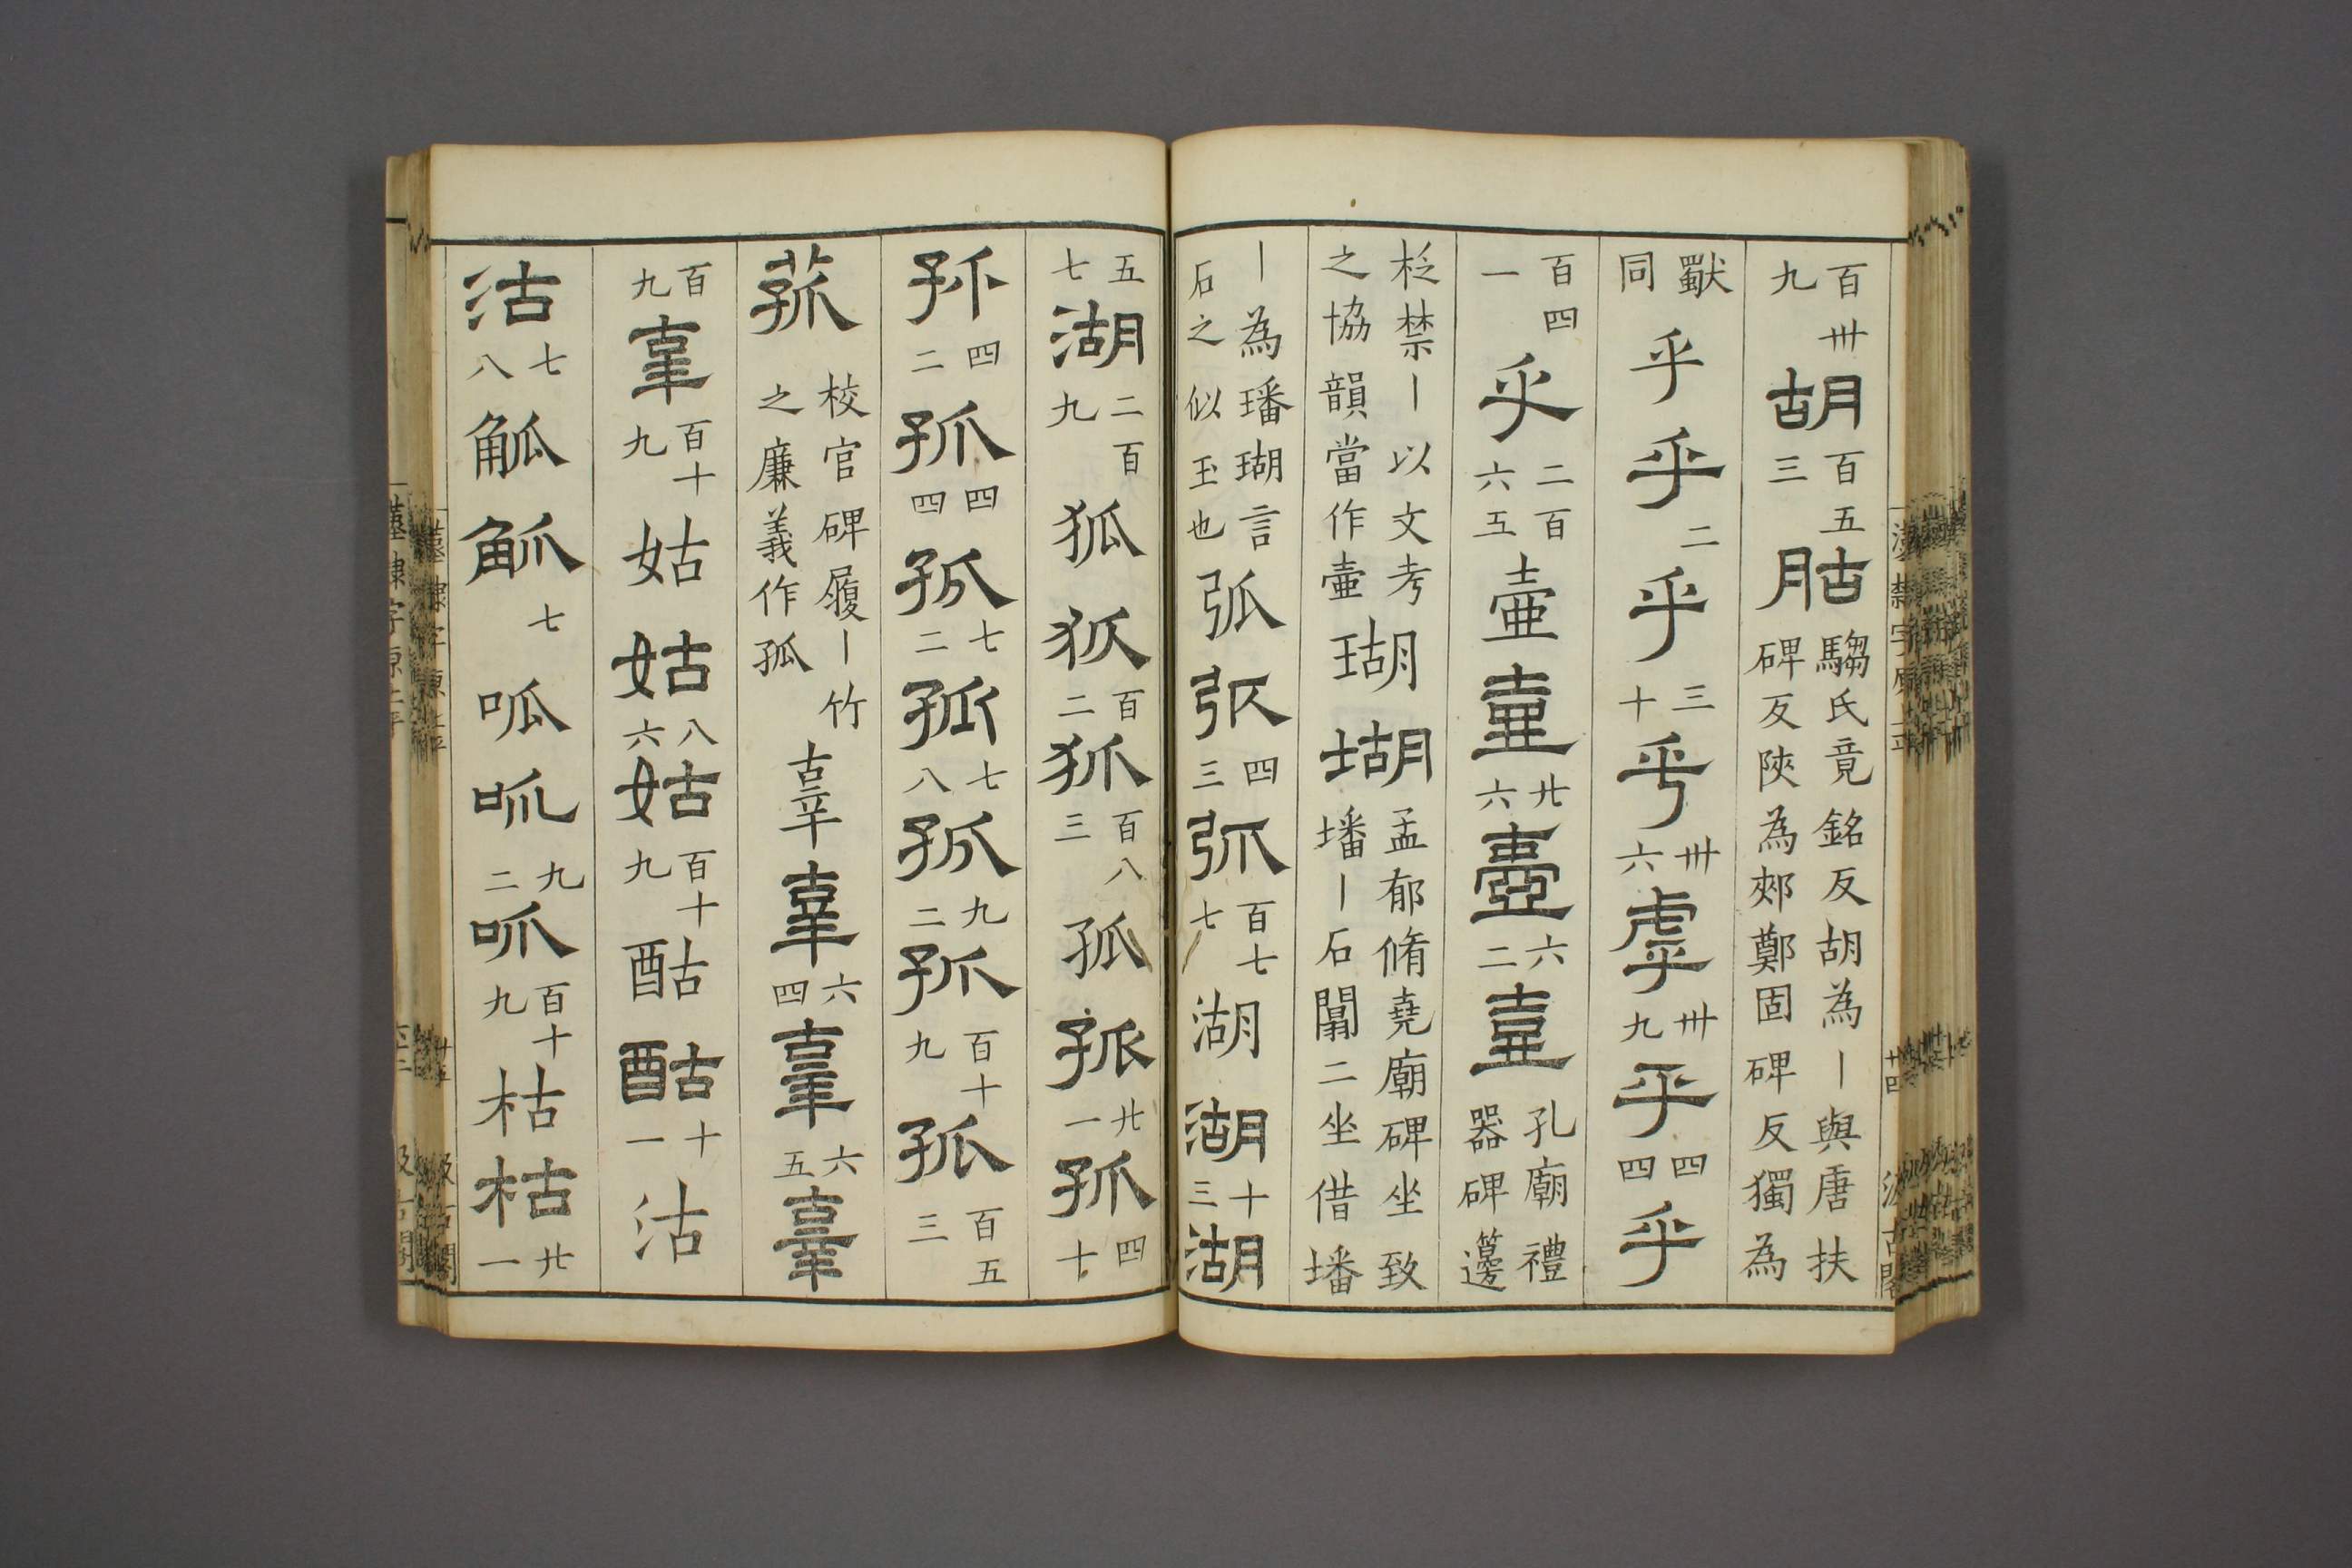 百卅九胡百五三胋騶氏竟銘反胡為丨與唐扶碑反陝為郟鄭固碑反獨為
獸同乎乎二乎三十乎卅六虖卅九乎四四乎
百四一乎二百六五壷壷廿六壺六二壷孔廟禮器碑籩
柉禁丨以文考之協韻當作壷瑚瑚孟郁脩堯廟碑坐致墦丨石闟二坐借墦
丨為璠瑚言石之似玉也弧弧四三弧百七七湖湖十三湖
五七湖二百九狐狐百二狐百八三孤孤廿一孤四十
孤四二孤四四孤七二孤七八孤九二孤百十九孤百五三
菰校官碑履丨竹之廉義作孤辜辜六四辜六五辜
百九辜百十九姑姑八六姑百十九酤酤十一沽
沽七八觚觚七呱呱九二呱百十九枯枯廿一